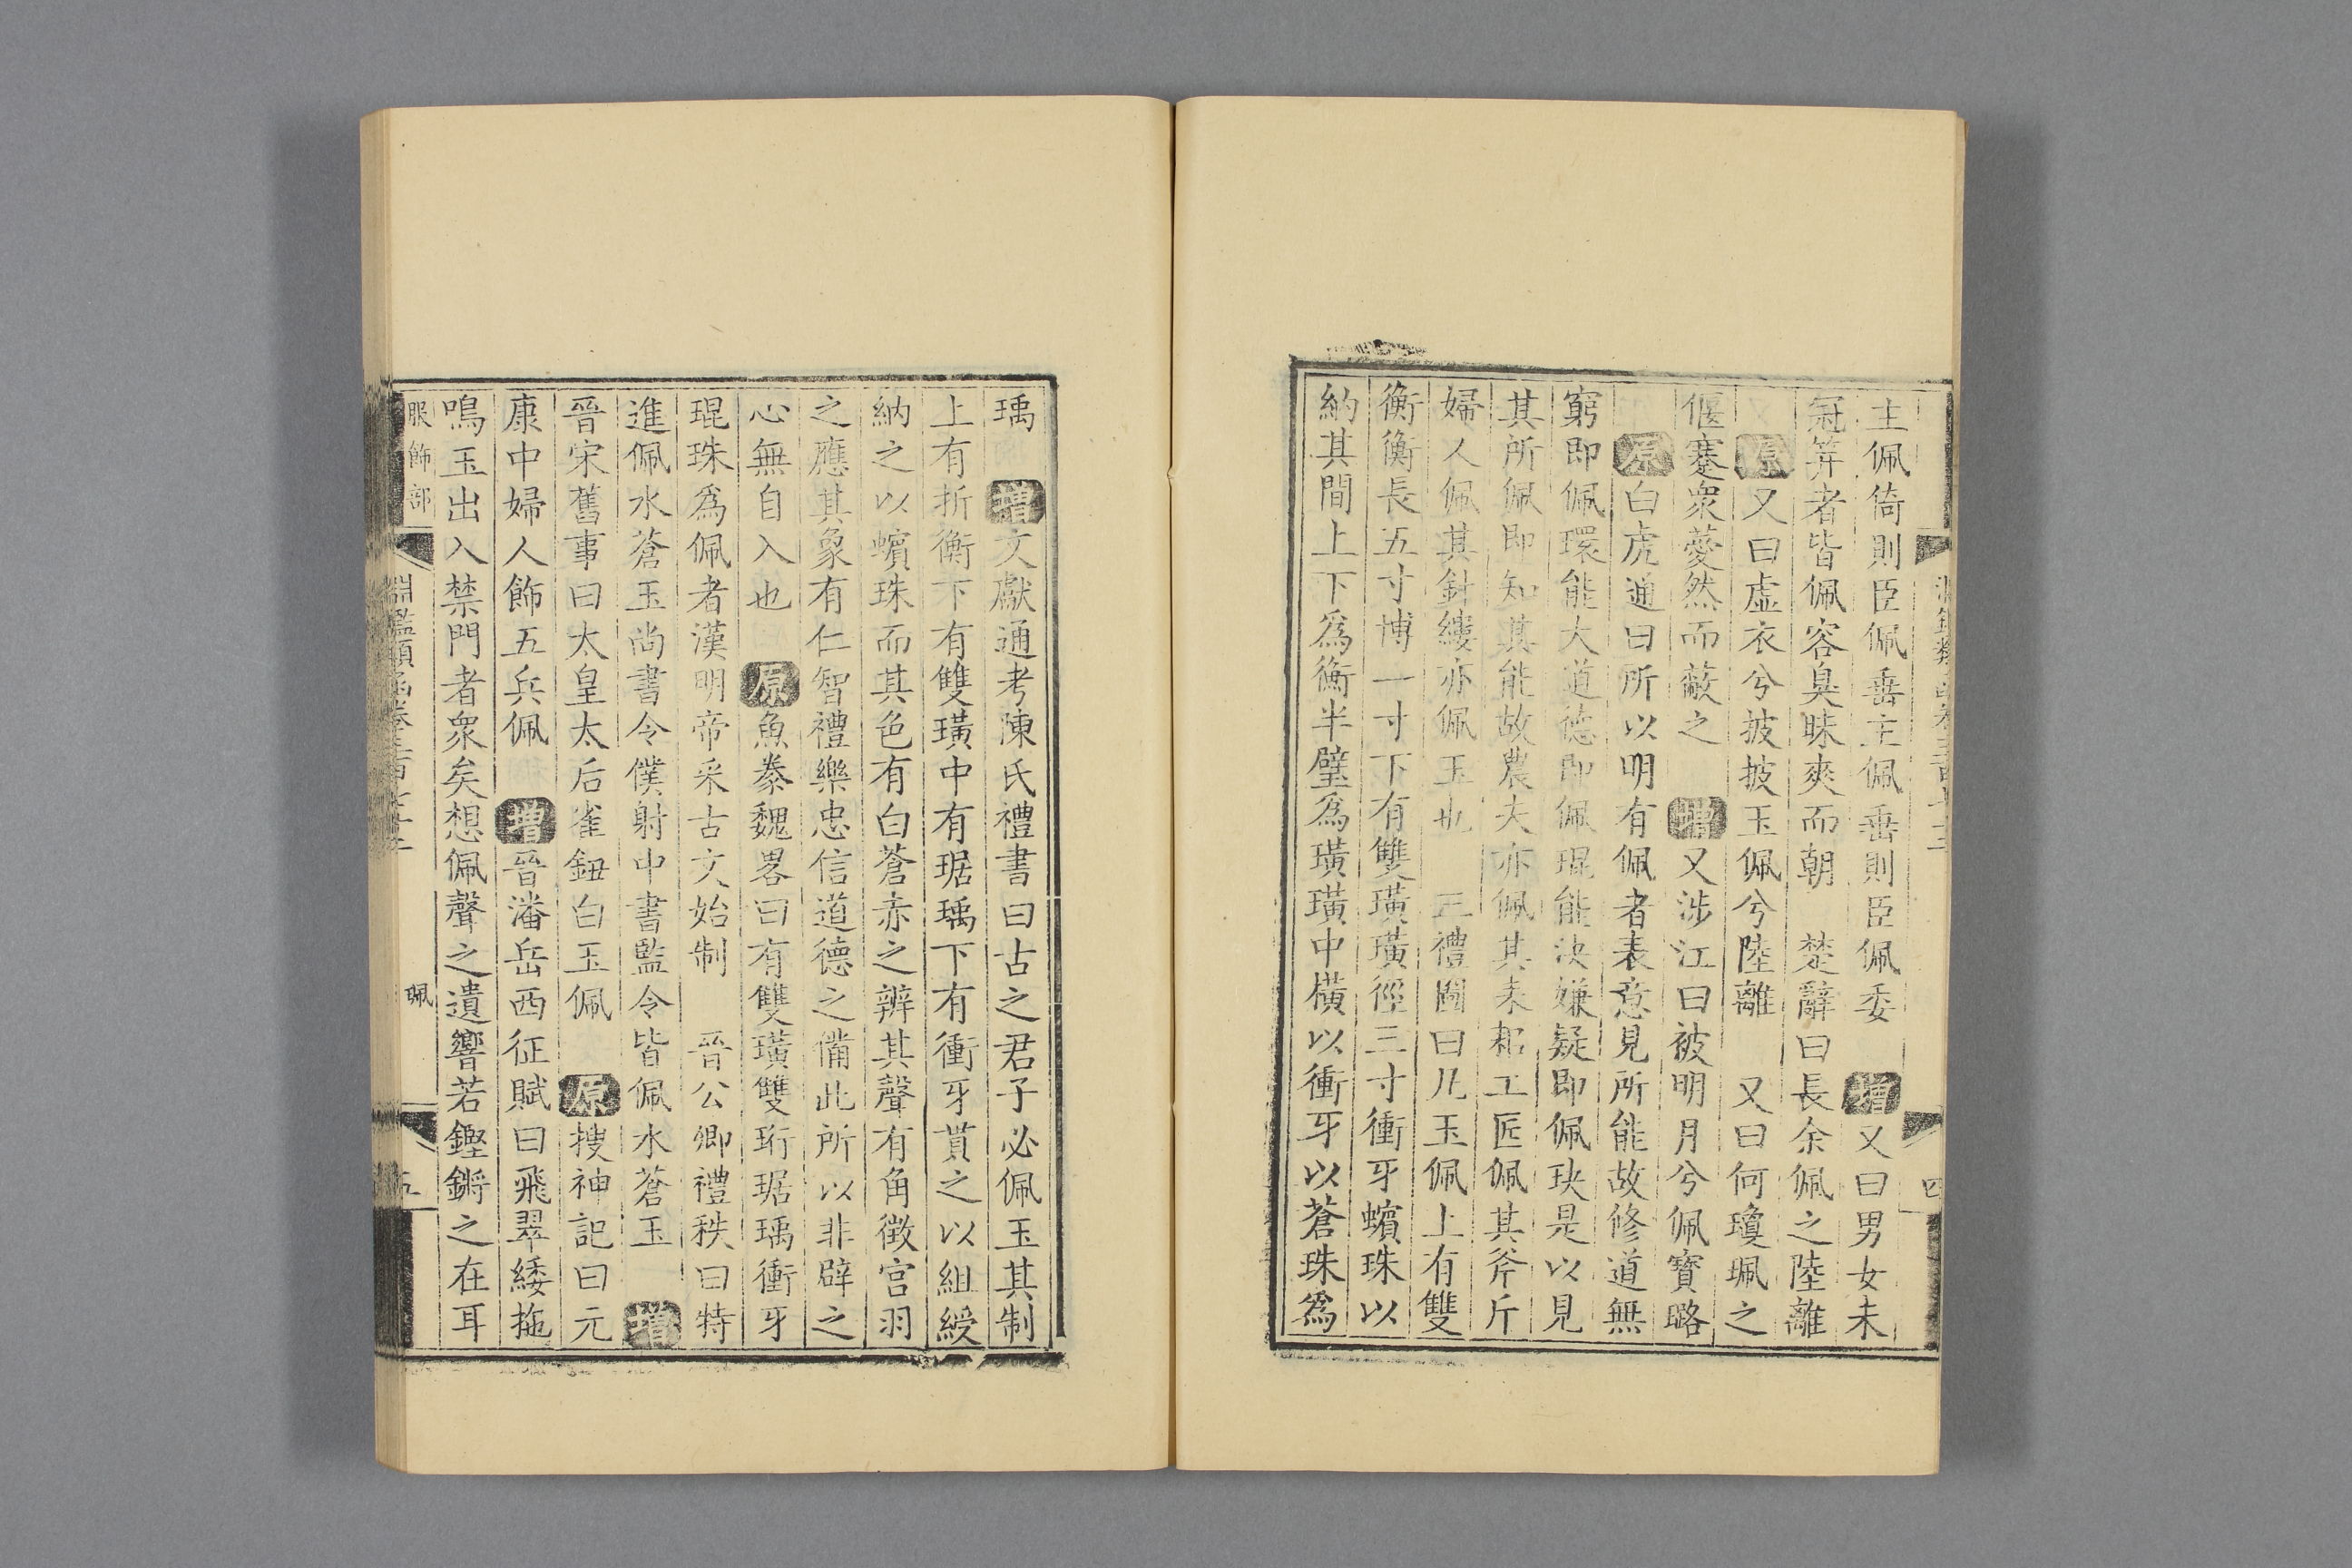 主佩倚則臣佩垂主佩垂則臣佩委 增又曰男女未
冠笄者皆佩容臭昧爽而朝 楚辭曰長余佩之陸離
原又曰虛衣兮披披玉佩兮陸離 又曰何瓊珮之
偃蹇衆薆然而蔽之 增又涉江曰被明月兮佩寶璐
原白虎通曰所以明有佩者表意見所能故修道無
窮即佩環能大道德即佩琨能決嫌疑即佩玦是以見
其所佩即知其能故農夫亦佩其耒耜工匠佩其斧斤
婦人佩其針縷亦佩玉也 三禮圖曰凡玉佩上有雙
衡衡長五寸博一寸下有雙璜璜徑三寸衝牙蠙珠以
納其間上下為衡半璧為璜璜中橫以衝牙以蒼珠為
瑀 增文獻通考陳氏禮書曰古之君子必佩玉其制
上有折衡下有雙璜中有琚瑀下有衝牙貫之以組綬
納之以蠙珠而其色有白蒼赤之辨其聲有角徵宮羽
之應其象有仁智禮樂忠信道德之備此所以非辟之
心無自入也 原魚豢魏畧曰有雙璜雙珩琚瑀衝牙
琨珠為佩者漢明帝采古文始制 晉公卿禮秩曰特
進佩水蒼玉尚書令僕射中書監令皆佩水蒼玉 增
晉宋舊事曰太皇太后雀鈕白玉佩 原搜神記曰元
康中婦人飾五兵佩 增晉潘岳西征賦曰飛翠緌拖
鳴玉出入禁門者衆矣想佩聲之遺響若鏗鏘之在耳
服飾部
淵鑑類函卷三百七十三
珮
五
四